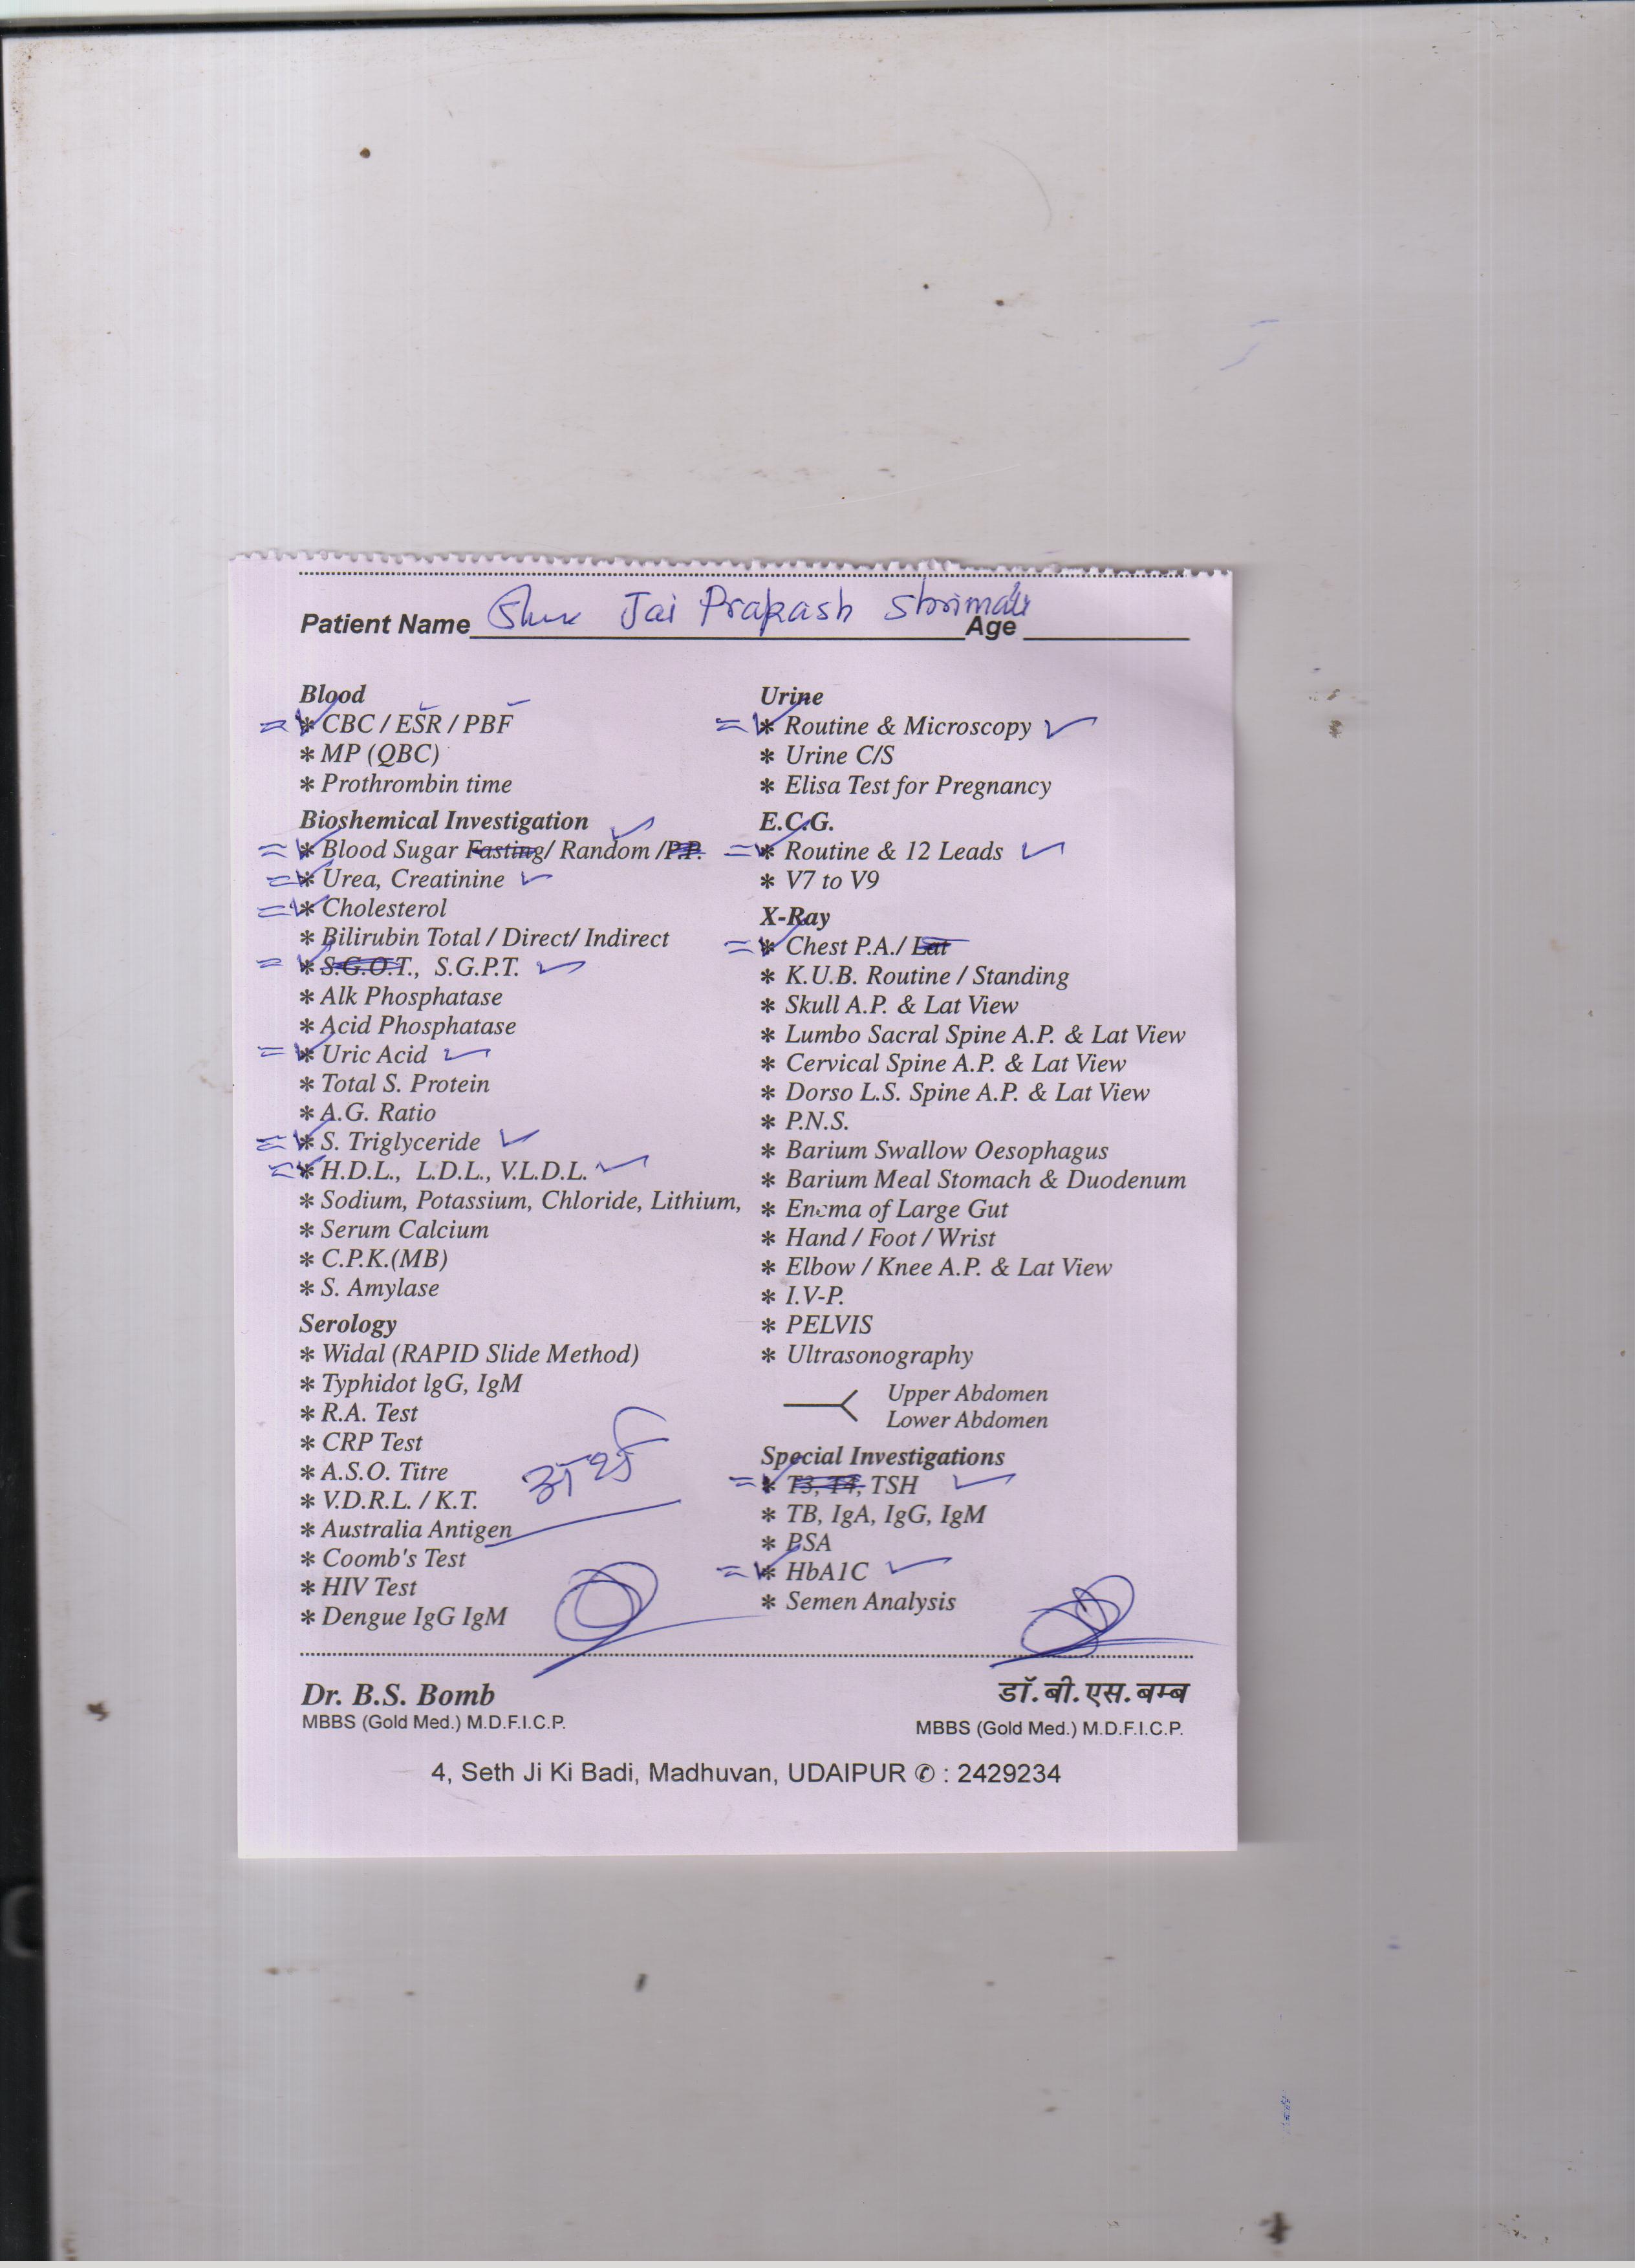 Patient Name Jai Prakash Shrimali Age
Blood
* CBC / ESR / PBF
* MP (QBC)
* Prothrombin time
Bioshemical Investigation
* Blood Sugar Fasting/ Random /P.P.
* Urea, Creatinine
* Cholesterol
* Bilirubin Total / Direct/ Indirect
* S.G.O.T., S.G.P.T.
* Alk Phosphatase
* Acid Phosphatase
* Uric Acid
* Total S. Protein
* A.G. Ratio
* S. Triglyceride
* H.D.L., L.D.L., V.L.D.L.
* Sodium, Potassium, Chloride, Lithium,
* Serum Calcium
* C.P.K.(MB)
* S. Amylase
Serology
* Widal (RAPID Slide Method)
* Typhidot lgG, IgM
* R.A. Test
* CRP Test
* A.S.O. Titre
* V.D.R.L. / K.T.
* Australia Antigen
* Coomb's Test
* HIV Test
* Dengue IgG IgM
Urine
* Routine & Microscopy
* Urine C/S
* Elisa Test for Pregnancy
E.C.G.
* Routine & 12 Leads
* V7 to V9
X-Ray
* Chest P.A./ Lat
* K.U.B. Routine / Standing
* Skull A.P. & Lat View
* Lumbo Sacral Spine A.P. & Lat View
* Cervical Spine A.P. & Lat View
* Dorso L.S. Spine A.P. & Lat View
* P.N.S.
* Barium Swallow Oesophagus
* Barium Meal Stomach & Duodenum
* Enema of Large Gut
* Hand / Foot / Wrist
* Elbow / Knee A.P. & Lat View
* I.V-P.
* PELVIS
* Ultrasonography
Upper Abdomen
Lower Abdomen
Special Investigations
* T3, T4, TSH
* TB, IgA, IgG, IgM
* PSA
* HbA1C
* Semen Analysis
Dr. B.S. Bomb
MBBS (Gold Med.) M.D.F.I.C.P.
डॉ. बी. एस. बम्ब
MBBS (Gold Med.) M.D.F.I.C.P.
4, Seth Ji Ki Badi, Madhuvan, UDAIPUR ✆ : 2429234